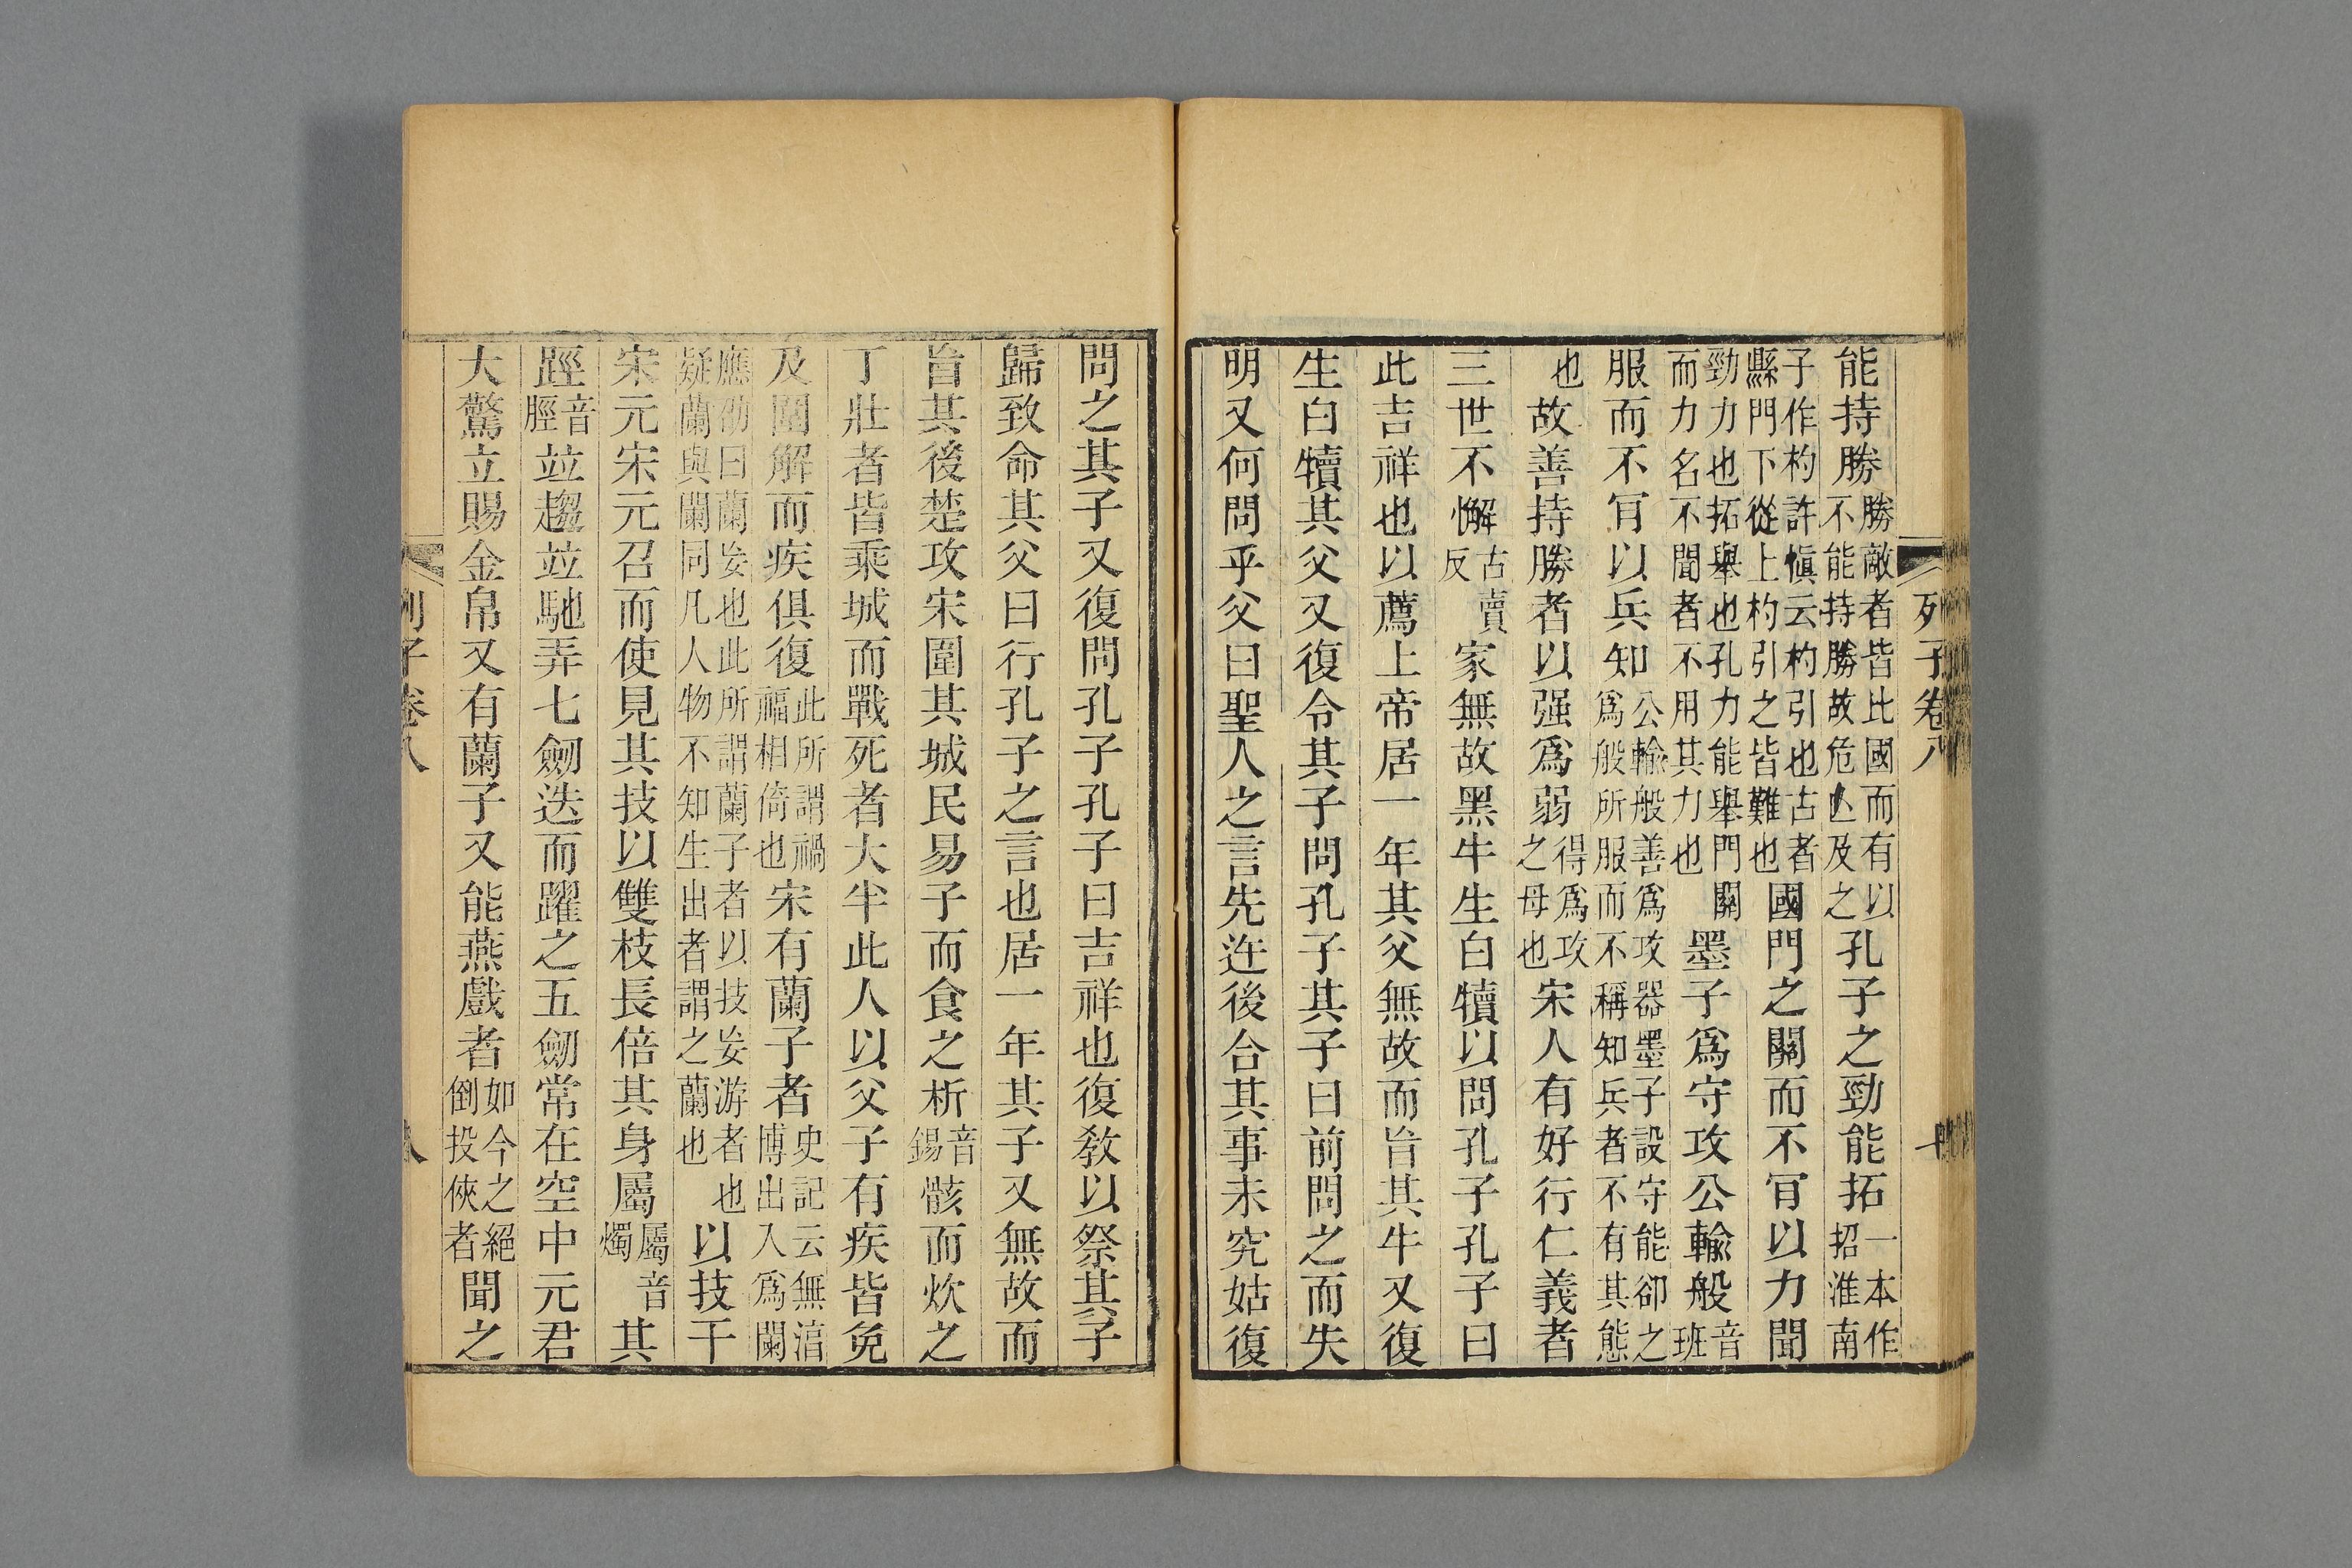 列子卷八 十
能持勝勝敵者皆比國而有以不能持勝故危亾及之孔子之勁能拓一本作招淮南
子作杓許愼云杓引也古者縣門下從上杓引之皆難也國門之關而不肎以力聞
勁力也拓舉也孔力能舉門關而力名不聞者不用其力也墨子爲守攻公輸般音班
服而不肎以兵知公輸般善爲攻器墨子設守能卻之爲般所服而不稱知兵者不有其態
也故善持勝者以强爲弱得爲攻之母也宋人有好行仁義者
三世不懈古賣反家無故黑牛生白犢以問孔子孔子曰
此吉祥也以薦上帝居一年其父無故而盲其牛又復
生白犢其父又復令其子問孔子其子曰前問之而失
明又何問乎父曰聖人之言先迕後合其事未究姑復
問之其子又復問孔子孔子曰吉祥也復敎以祭其子
歸致命其父曰行孔子之言也居一年其子又無故而
盲其後楚攻宋圍其城民易子而食之析音錫骸而炊之
丁壯者皆乘城而戰死者大半此人以父子有疾皆免
及圍解而疾俱復此所謂禍福相倚也宋有蘭子者史記云無㴑博出入爲闌
應劭曰蘭妄也此所謂蘭子者以技妄游者也疑蘭與闌同凡人物不知生出者謂之蘭也以技干
宋元宋元召而使見其技以雙枝長倍其身屬屬音燭其
踁音脛竝趨竝馳弄七劒迭而躍之五劒常在空中元君
大驚立賜金帛又有蘭子又能燕戲者如今之絕倒投俠者聞之
列子卷八